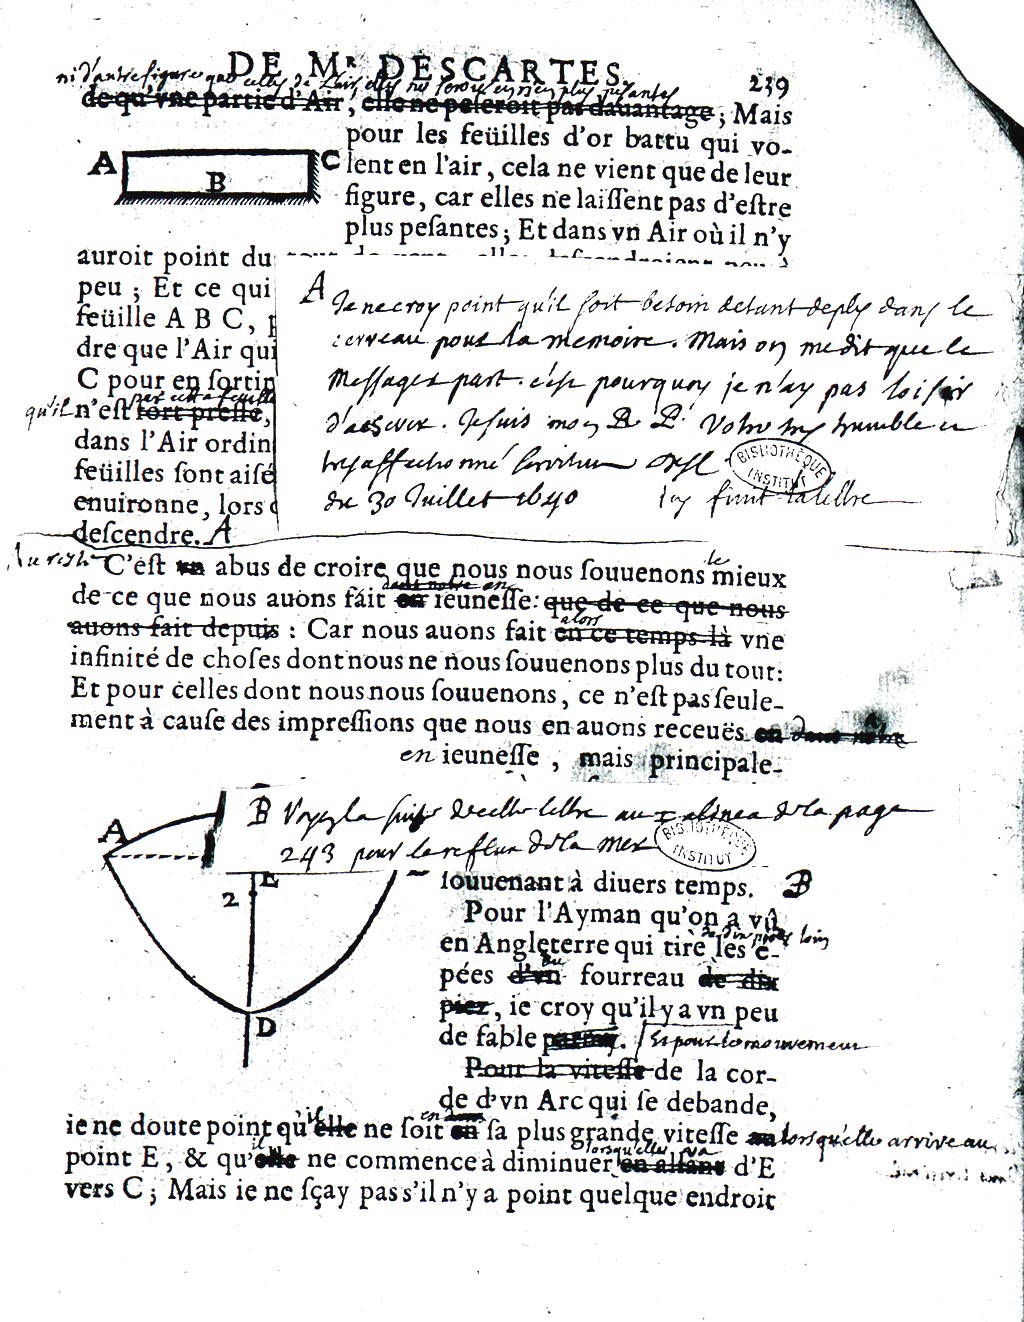 DE Mʳ DESCARTES. 239
ni d'autre figure que celles de l'air, elles ne seroient plus pesantes
de qu'vne partie d'Air, elle ne peseroit pas dauantage ; Mais
pour les feüilles d'or battu qui vo-
lent en l'air, cela ne vient que de leur
figure, car elles ne laissent pas d'estre
plus pesantes ; Et dans vn Air où il n'y
A B C
auroit point du
peu ; Et ce qui
feüille A B C,
dre que l'Air qui
C pour en sortir
par cette feuille
qu'il n'est fort pressé,
dans l'Air ordin
feüilles sont aisé
enuironne, lors
descendre. A
A Je ne croy point qu'il soit besoin de tant de plis dans le
cerveau pour la memoire. Mais on me dit que le
Messager part. c'est pourquoy je n'ay pas loisir
d'achever. Je suis mon R. P. Votre tres humble et
tres affectionné serviteur Desc
BIBLIOTHÈQUE INSTITUT
du 30 Juillet 1640 Icy finit la lettre
Au reste C'est vn abus de croire que nous nous souuenons le mieux
dans notre en
de ce que nous auons fait en ieunesse: que de ce que nous
auons fait depuis : Car nous auons fait alors en ce temps-là vne
infinité de choses dont nous ne nous souuenons plus du tout:
Et pour celles dont nous nous souuenons, ce n'est pas seule-
ment à cause des impressions que nous en auons receuës en dans notre
en ieunesse , mais principale-
B Voyez la suite de cette lettre au 1 alinea de la page
243 pour le reflux de la Mer
BIBLIOTHÈQUE INSTITUT
A
E
2
D
souuenant à diuers temps. B
Pour l'Ayman qu'on a vû
en Angleterre qui tire les é-
pées d'vn du fourreau de dix
piez, ie croy qu'il y a vn peu
de fable parmy. Et pour le mouvement
Pour la vitesse de la cor-
de d'vn Arc qui se debande,
ie ne doute point qu'il elle ne soit en sa plus grande vitesse au lorsqu'elle arrive au
point E, & qu'il elle ne commence à diminuer lorsqu'elle va en allant d'E
vers C ; Mais ie ne sçay pas s'il n'y a point quelque endroit